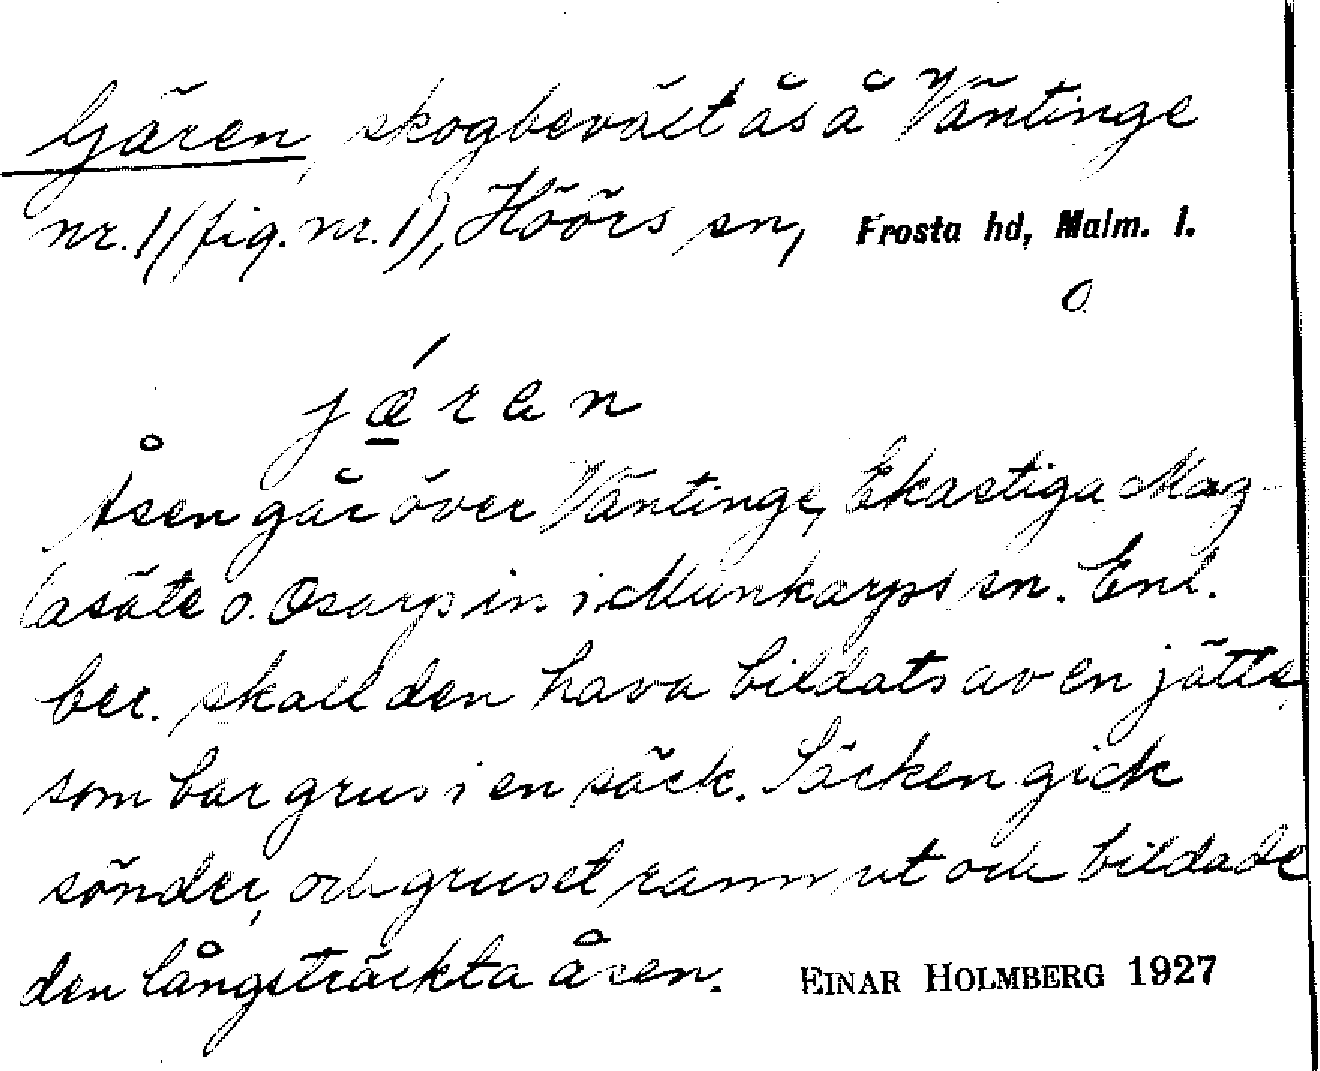 Gären, skogbevält ås å Väntinge
nr. 1 (fig. nr. 1), Höörs sn, Frosta hd, Malm. l.
jǽren
Åsen går över Väntinge, Ekastiga, Mag-
lasäte o. Osarp in i Munkarps sn. Enl.
ber. skall den hava bildats av en jätte,
som bar grus i en säck. Säcken gick
sönder, och gruset rann ut och bildade
den långsträckta åsen. EINAR HOLMBERG 1927